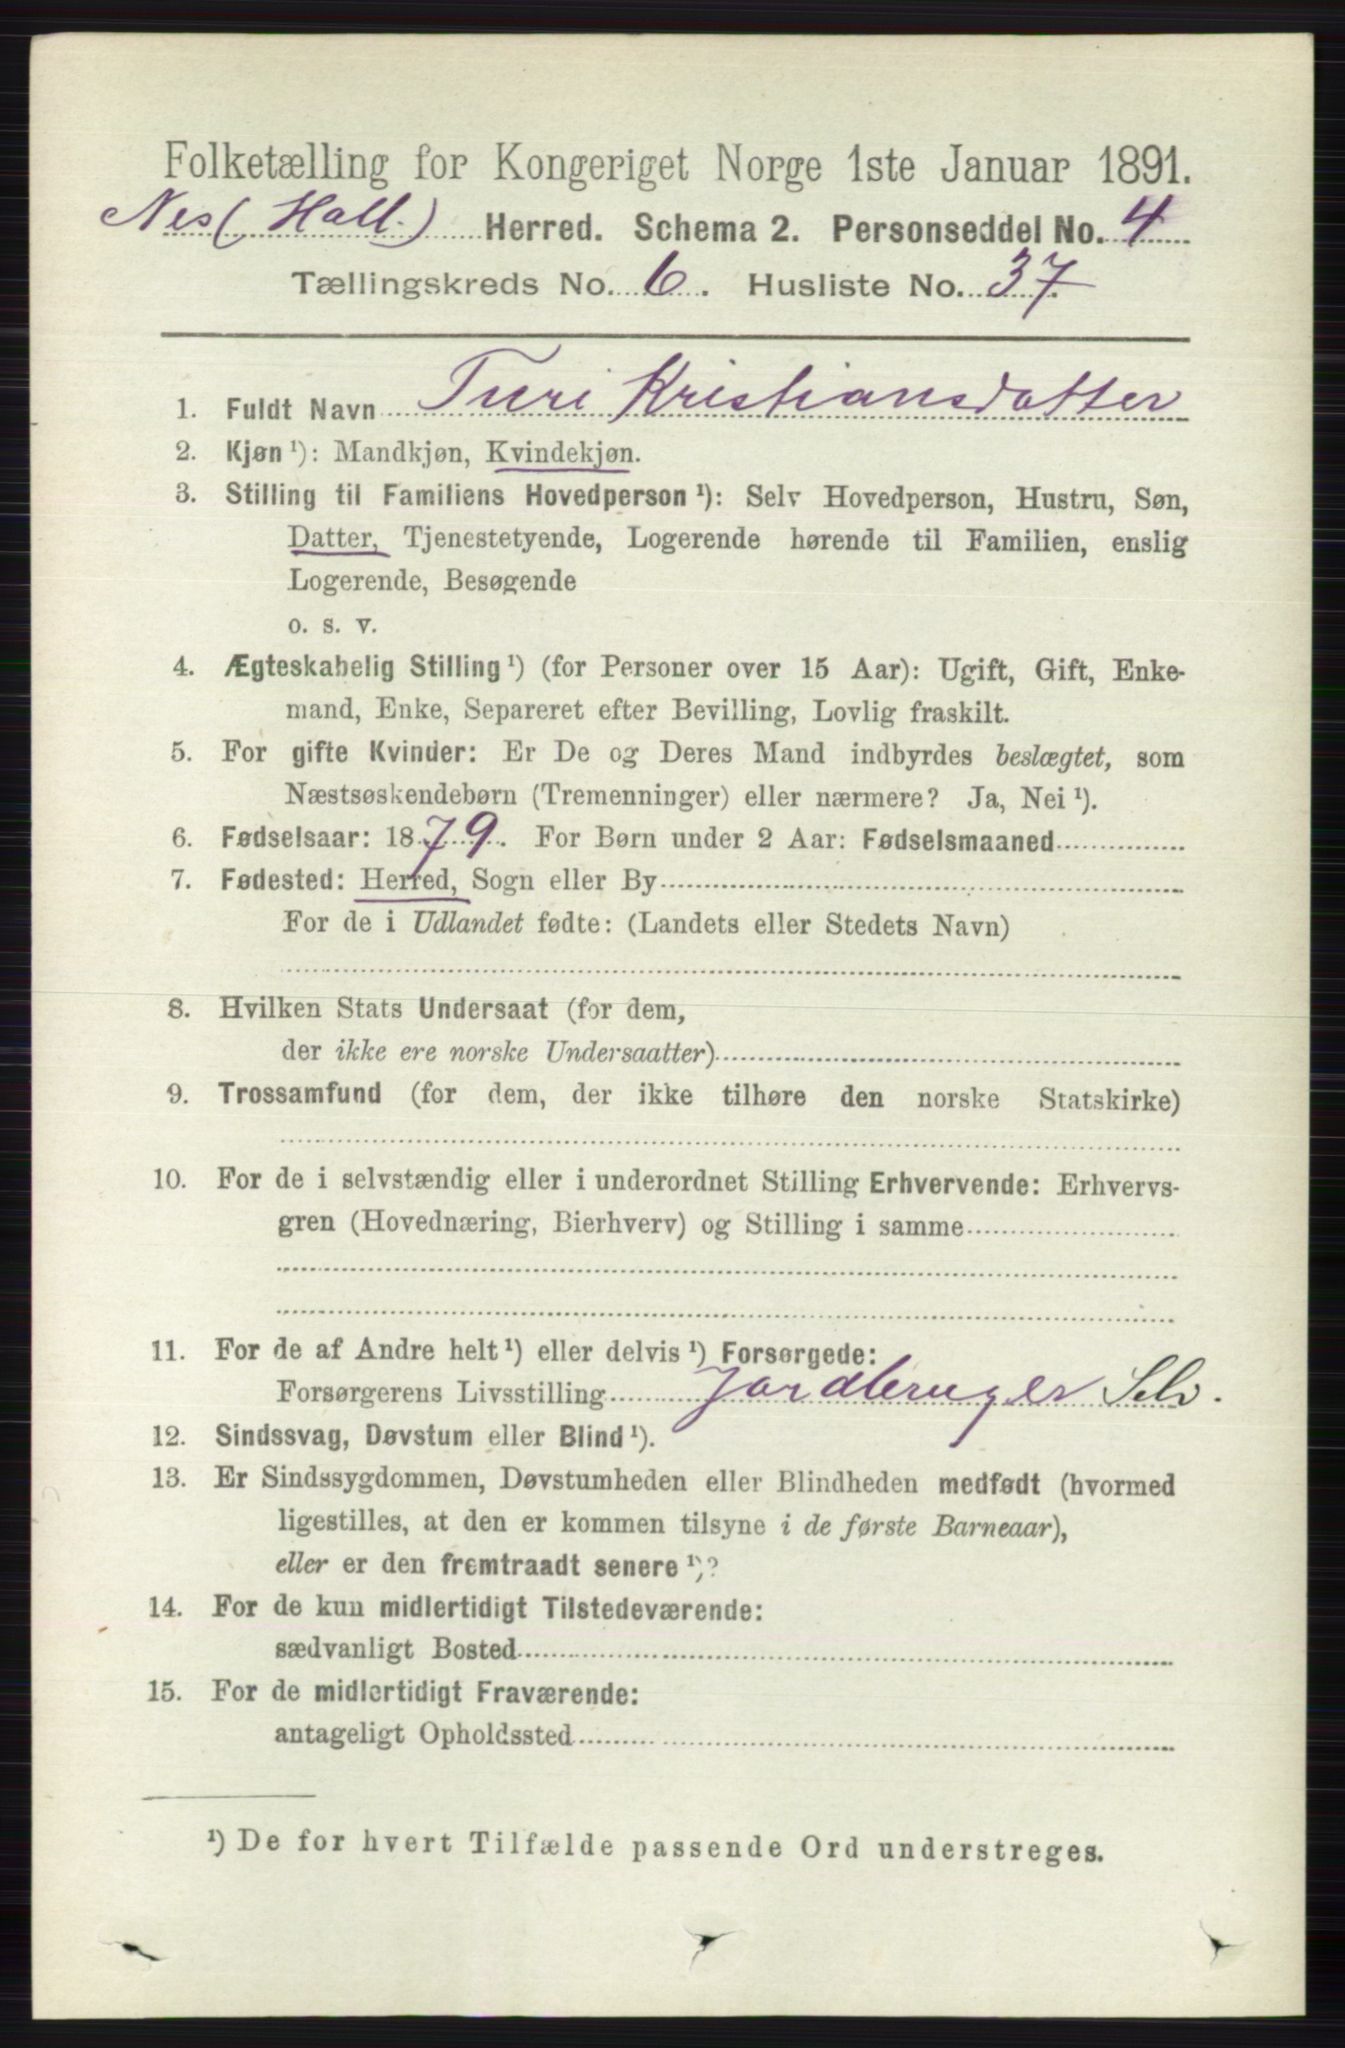 Folketælling for Kongeriget Norge 1ste Januar 1891.
Nes (Hall.) Herred. Schema 2. Personseddel No. 4
Tællingskreds No. 6. Husliste No. 37.
1. Fuldt Navn Turi Kristiansdatter
2. Kjøn ¹): Mandkjøn, Kvindekjøn.
3. Stilling til Familiens Hovedperson ¹): Selv Hovedperson, Hustru, Søn,
Datter, Tjenestetyende, Logerende hørende til Familien, enslig
Logerende, Besøgende
o. s. v.
4. Ægteskabelig Stilling ¹) (for Personer over 15 Aar): Ugift, Gift, Enke-
mand, Enke, Separeret efter Bevilling, Lovlig fraskilt.
5. For gifte Kvinder: Er De og Deres Mand indbyrdes beslægtet, som
Næstsøskendebørn (Tremenninger) eller nærmere? Ja, Nei ¹).
6. Fødselsaar: 1879. For Børn under 2 Aar: Fødselsmaaned
7. Fødested: Herred, Sogn eller By
For de i Udlandet fødte: (Landets eller Stedets Navn)
8. Hvilken Stats Undersaat (for dem,
der ikke ere norske Undersaatter)
9. Trossamfund (for dem, der ikke tilhøre den norske Statskirke)
10. For de i selvstændig eller i underordnet Stilling Erhvervende: Erhvervs-
gren (Hovednæring, Bierhverv) og Stilling i samme
11. For de af Andre helt ¹) eller delvis ¹) Forsørgede:
Forsørgerens Livsstilling Jordbruger Selv.
12. Sindssvag, Døvstum eller Blind ¹).
13. Er Sindssygdommen, Døvstumheden eller Blindheden medfødt (hvormed
ligestilles, at den er kommen tilsyne i de første Barneaar),
eller er den fremtraadt senere ¹)?
14. For de kun midlertidigt Tilstedeværende:
sædvanligt Bosted
15. For de midlertidigt Fraværende:
antageligt Opholdssted
¹) De for hvert Tilfælde passende Ord understreges.